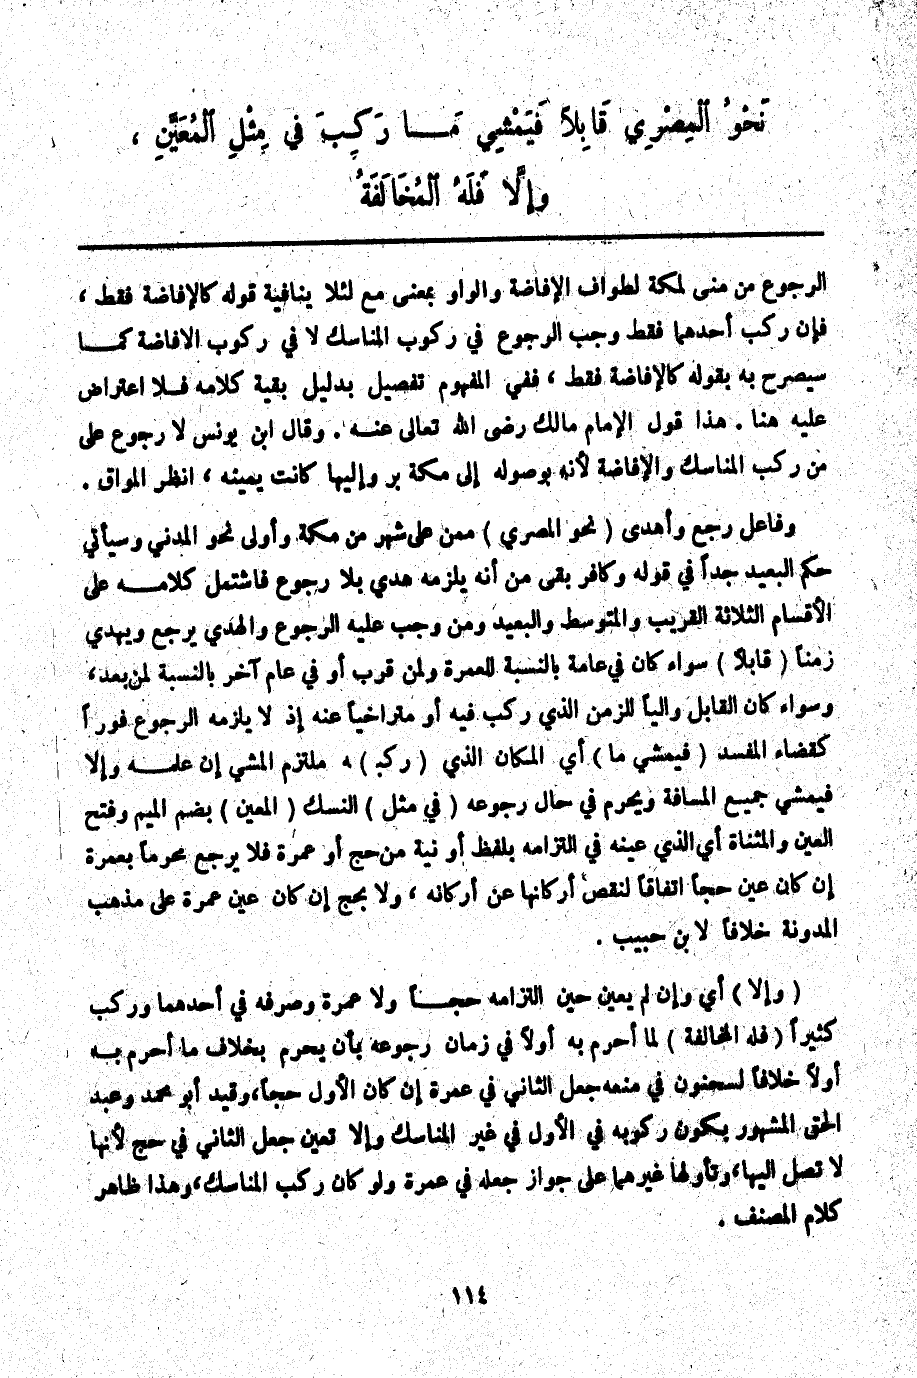 نَحْوُ ٱلْمِصْرِي قَابِلاً فَيَمْشِي مَا رَكِبَ فِي مِثْلِ ٱلْمُعَيَّنِ ،
وإِلَّا فَلَهُ ٱلْمُخَالَفَةُ
الرجوع من منى لمكة لطواف الإفاضة والواو بمعنى مع لئلا ينافية قوله كالإفاضة فقط ،
فإن ركب أحدهما فقط وجب الرجوع في ركوب المناسك لا في ركوب الافاضة كما
سيصرح به بقوله كالإفاضة فقط ، ففي المفهوم تفصيل بدليل بقية كلامه فلا اعتراض
عليه هنا . هذا قول الإمام مالك رضى الله تعالى عنه . وقال ابن يونس لا رجوع على
من ركب المناسك والإفاضة لأنه بوصوله إلى مكة بر وإليها كانت يمينه ، انظر المواق .
وفاعل رجع وأهدى ( نحو المصري ) ممن على شهر من مكة وأولى نحو المدني وسيأتي
حكم البعيد جداً في قوله وكافر بقى من أنه يلزمه هدي بلا رجوع فاشتمل كلامه على
الأقسام الثلاثة القريب والمتوسط والبعيد ومن وجب عليه الرجوع والهدي يرجع ويهدي
زمناً ( قابلاً ) سواء كان في عامة بالنسبة للعمرة ولمن قرب أو في عام آخر بالنسبة لمن بعد ،
وسواء كان القابل والياً للزمن الذي ركب فيه أو متراخياً عنه إذ لا يلزمه الرجوع فوراً
كقضاء المفسد ( فيمشي ما ) أي المكان الذي ( ركب ) ه ملتزم المشي إن علمه وإلا
فيمشي جميع المسافة ويحرم في حال رجوعه ( في مثل ) النسك ( المعين ) بضم الميم وفتح
العين والمثناة أي الذي عينه في التزامه بلفظ أو نية من حج أو عمرة فلا يرجع محرماً بعمرة
إن كان عين حجاً اتفاقاً لنقص أركانها عن أركانه ، ولا بحج إن كان عين عمرة على مذهب
المدونة خلافاً لا بن حبيب .
( وإلا ) أي وإن لم يعين حين التزامه حجاً ولا عمرة وصرفه في أحدهما وركب
كثيراً ( فله المخالفة ) لما أحرم به أولاً في زمان رجوعه بأن يحرم بخلاف ما أحرم به
أولاً خلافاً لسحنون في منعه جعل الثاني في عمرة إن كان الأول حجاً ، وقيد أبو محمد وعبد
الحق المشهور بكون ركوبه في الأول في غير المناسك وإلا تعين جعل الثاني في حج لأنها
لا تصل اليها ، وتأولها غيرهما على جواز جعله في عمرة ولو كان ركب المناسك ، وهذا ظاهر
كلام المصنف .
١١٤